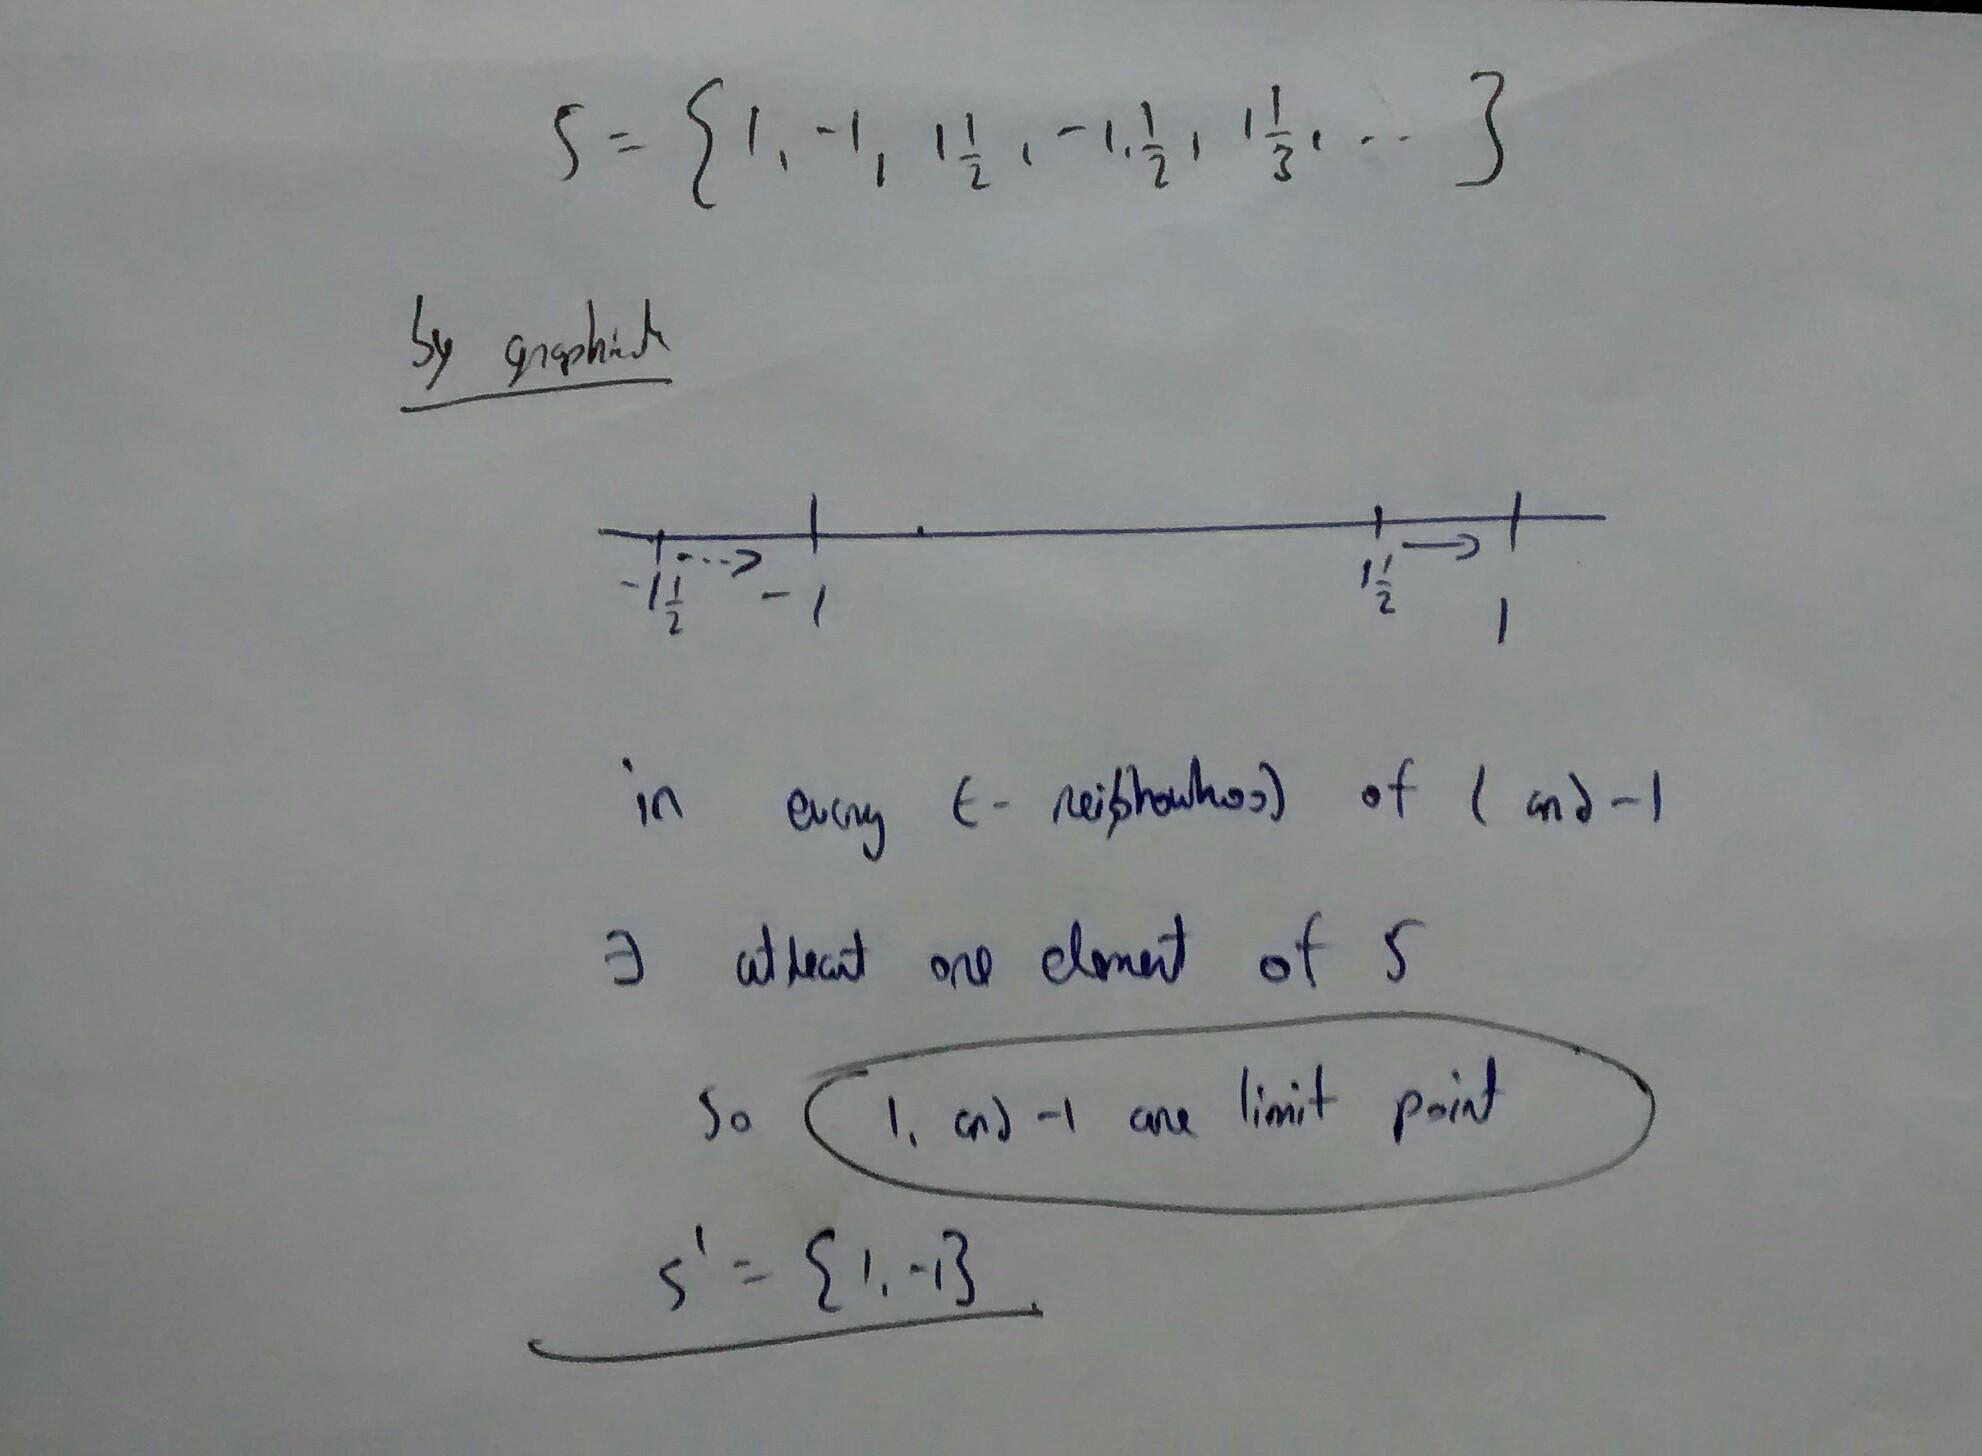 S = { 1, -1, 1 1/2, -1, 1/2, 1 1/3, ... }
by
-1 1/2 -1 1 1/2 1
in every ε- neighbourhood of 1 and -1
∃ atleast one element of S
So 1, and -1 are limit point
S' = {1, -1}